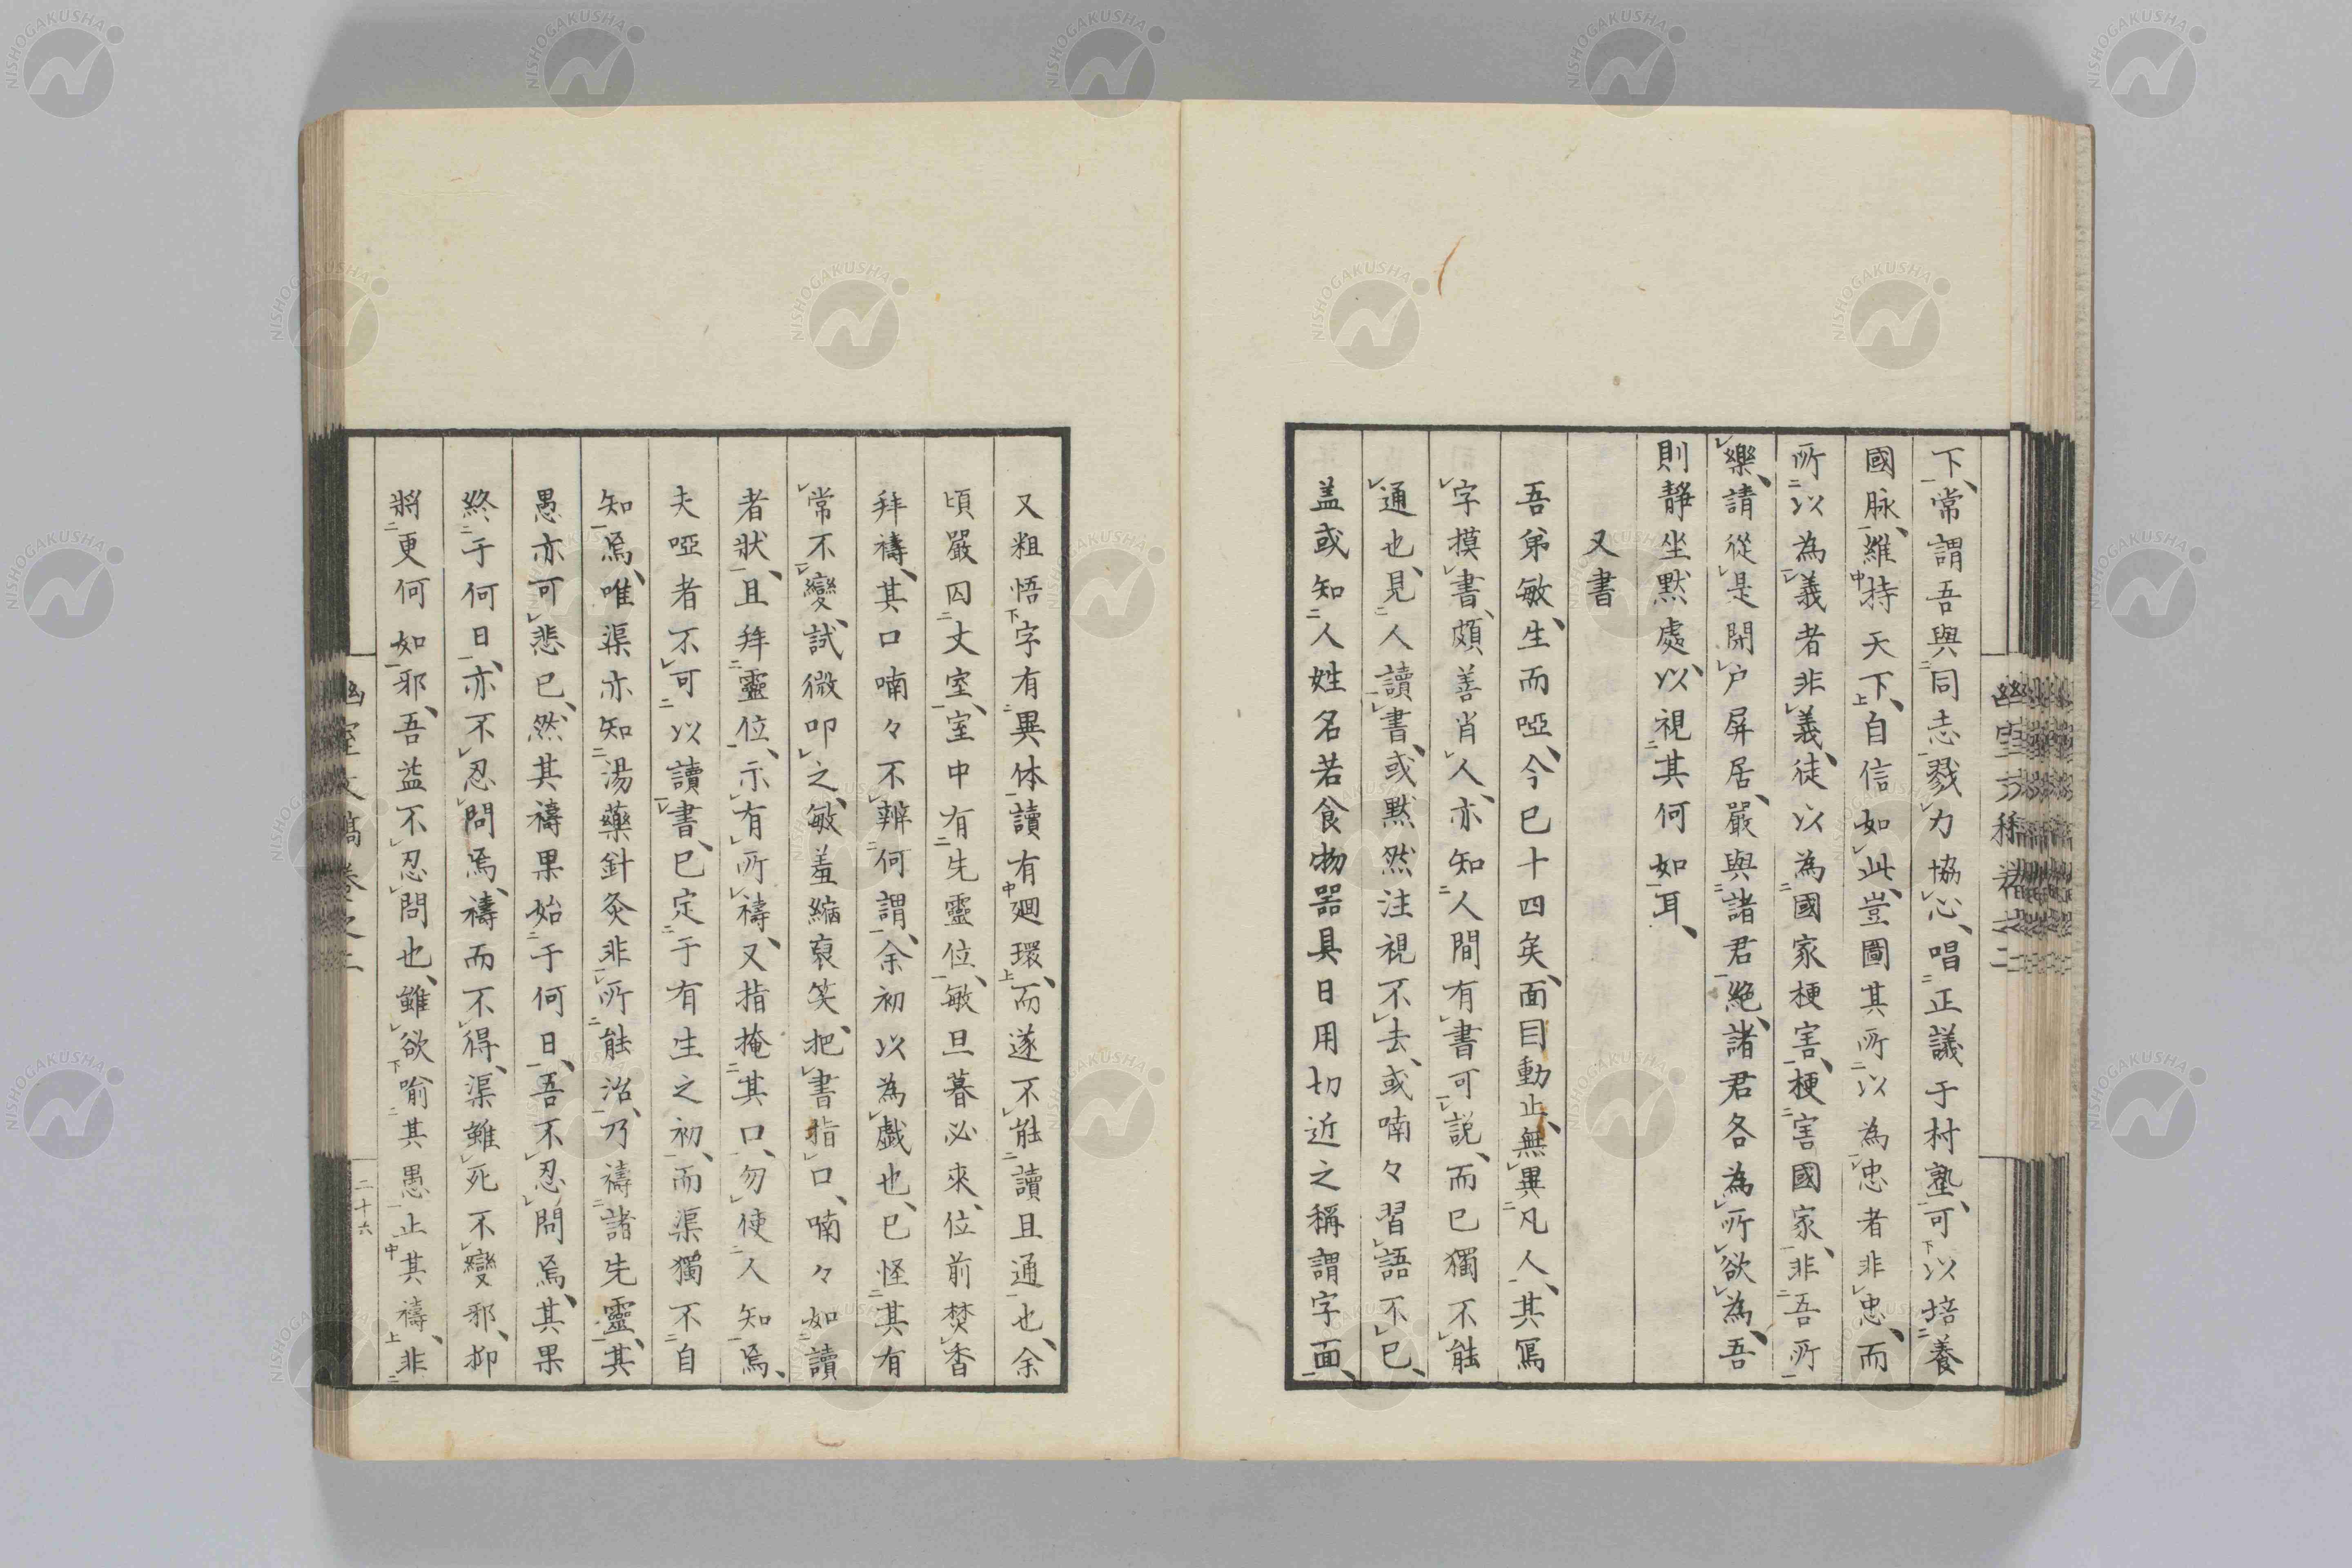 下、常謂吾與同志戮力協心、唱正議于村塾、可以培養
國脉、維持天下、自信如此、豈圖其所以為忠者非忠、而
所以為義者非義、徒以為國家梗害、梗害國家、非吾所
樂、請從是閉戶屏居、嚴與諸君絶、諸君各為所欲為、吾
則靜坐默處、以視其何如耳、
又書
吾弟敏、生而啞、今已十四矣、面目動止、無異凡人、其寫
字摸書、頗善肖人、亦知人間有書可説、而已獨不能
通也、見人讀書、或默然注視不去、或喃々習語不已、
盖或知人姓名若食物器具日用切近之稱謂字面、
又粗悟字有異体讀有廻環、而遂不能讀且通也、余
頃嚴囚丈室、室中有先靈位、敏旦暮必來、位前焚香
拜禱、其口喃々不辨何謂、余初以為戲也、已怪其有
常不變、試微叩之、敏羞縮裒笑、把書指口、喃々如讀
者狀、且拜靈位、示有所禱、又指掩其口、勿使人知焉、
夫啞者不可以讀書、已定于有生之初、而渠獨不自
知焉、唯渠亦知湯藥針灸非所能治、乃禱諸先靈、其
愚亦可悲已、然其禱果始于何日、吾不忍問焉、其果
終于何日、亦不忍問焉、禱而不得、渠雖死不變邪、抑
將更何如邪、吾益不忍問也、雖欲喻其愚止其禱、非
幽室文稿卷之二
二十六
NISHOGAKUSHA